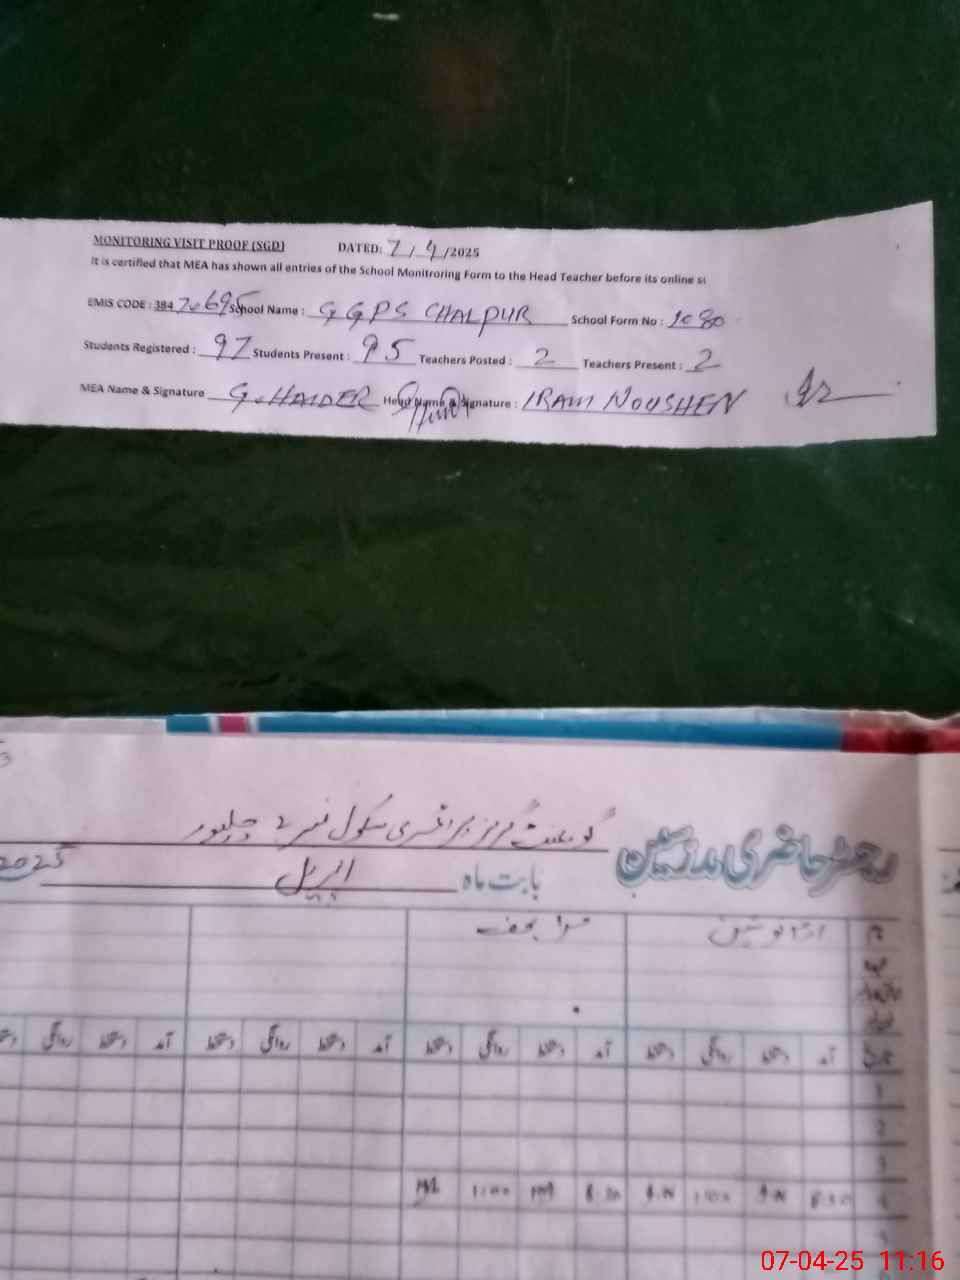 MONITORING VISIT PROOF (SGD) DATED: 7/4/2025
It is certified that MEA has shown all entries of the School Monitroring Form to the Head Teacher before its online su
EMIS CODE : 384 70695 School Name : GGPS CHALPUR School Form No : 1080
Students Registered : 97 Students Present : 95 Teachers Posted : 2 Teachers Present : 2
MEA Name & Signature G.HAIDER Head Name & Signature : IRAM NOUSHEN
رجسٹر حاضری مدرسین گورنمنٹ گرلز پرائمری سکول نمبر 2 چلپور
بابت ماہ اپریل 2025
نام ارم نوشین
آمد دستخط روانگی دستخط آمد دستخط روانگی دستخط آمد دستخط روانگی دستخط
1
2
3
4 8:30 1:00 8:30 1:00
07-04-25 11:16